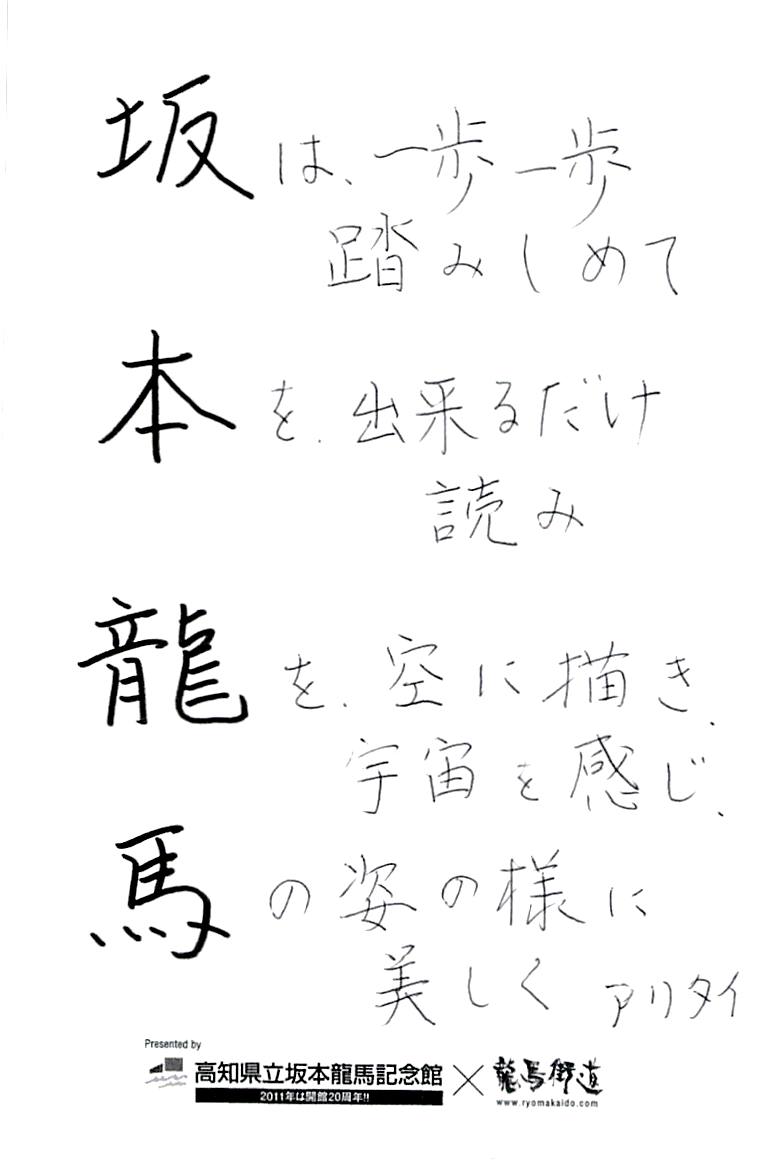 坂は、一歩一歩
踏みしめて
本を、出来るだけ
読み
龍を、空に描き、
宇宙を感じ、
馬の姿の様に
美しく アリタイ
Presented by
高知県立坂本龍馬記念館×龍馬街道
2011年は開館20周年!!
www.ryomakaido.com